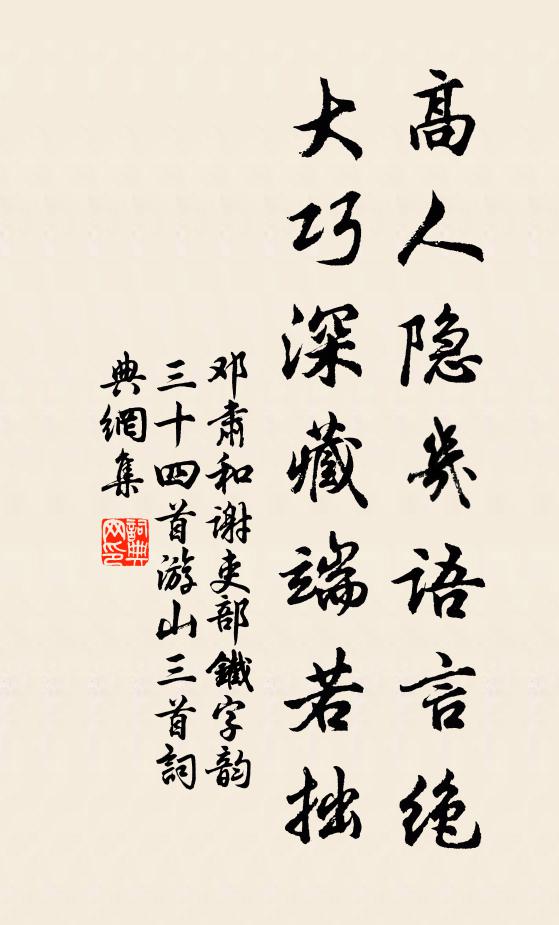 高人隐几语言绝
大巧深藏端若拙
邓肃和谢吏部鐵字韵
三十四首游山三首詞
典網集
詞典网印